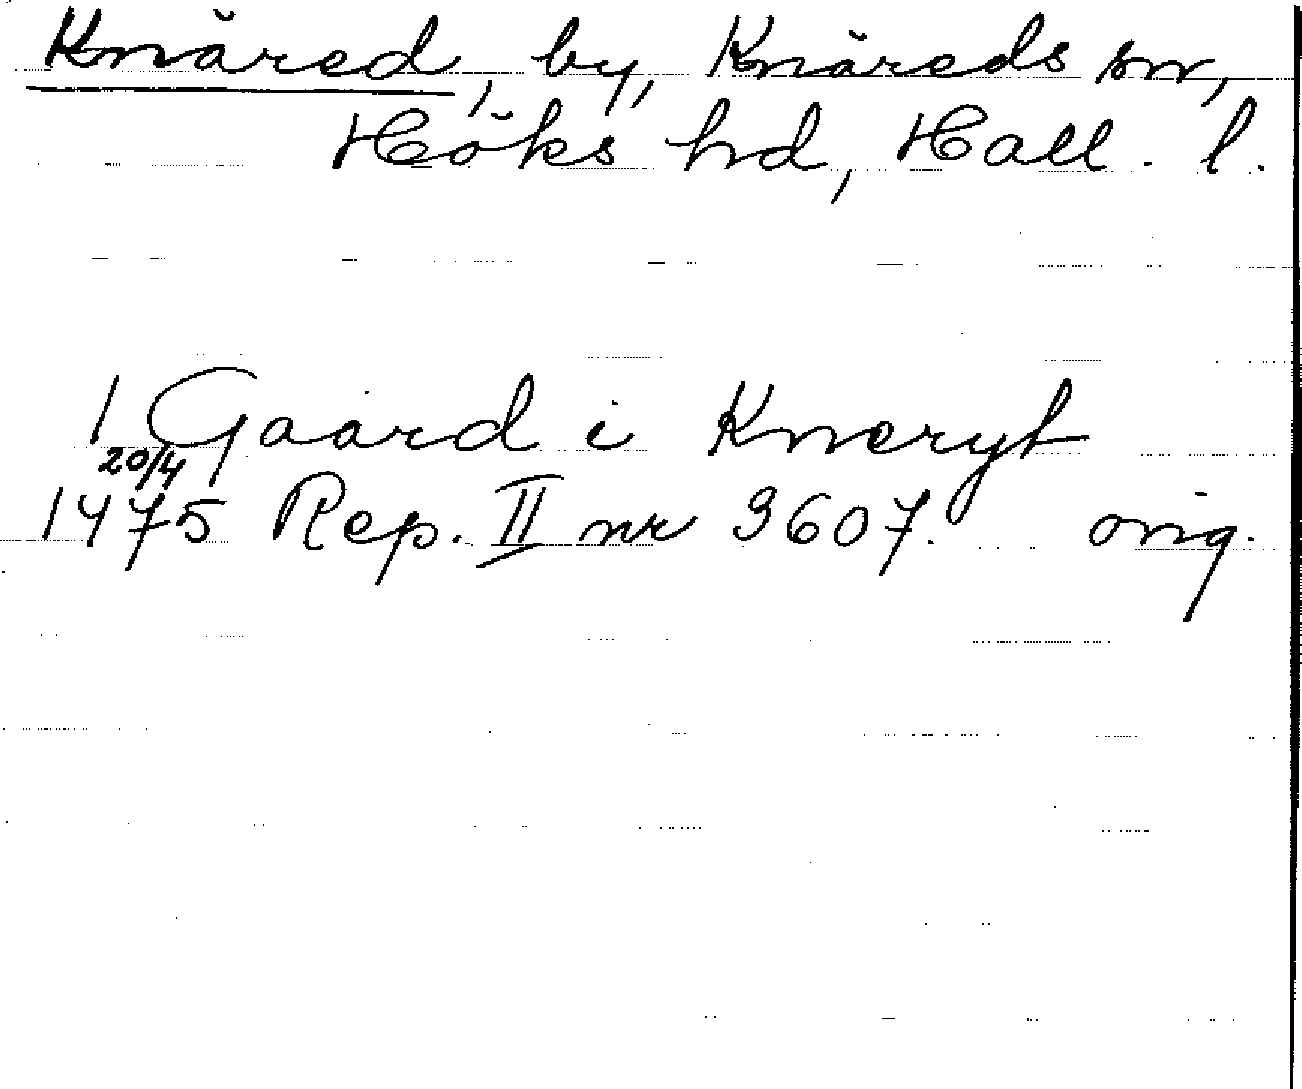 Knäred, by, Knäreds sn,
Höks hd, Hall. l.
1 Gaard i Kneryt
20/4
1475 Rep. II nr 3607. orig.